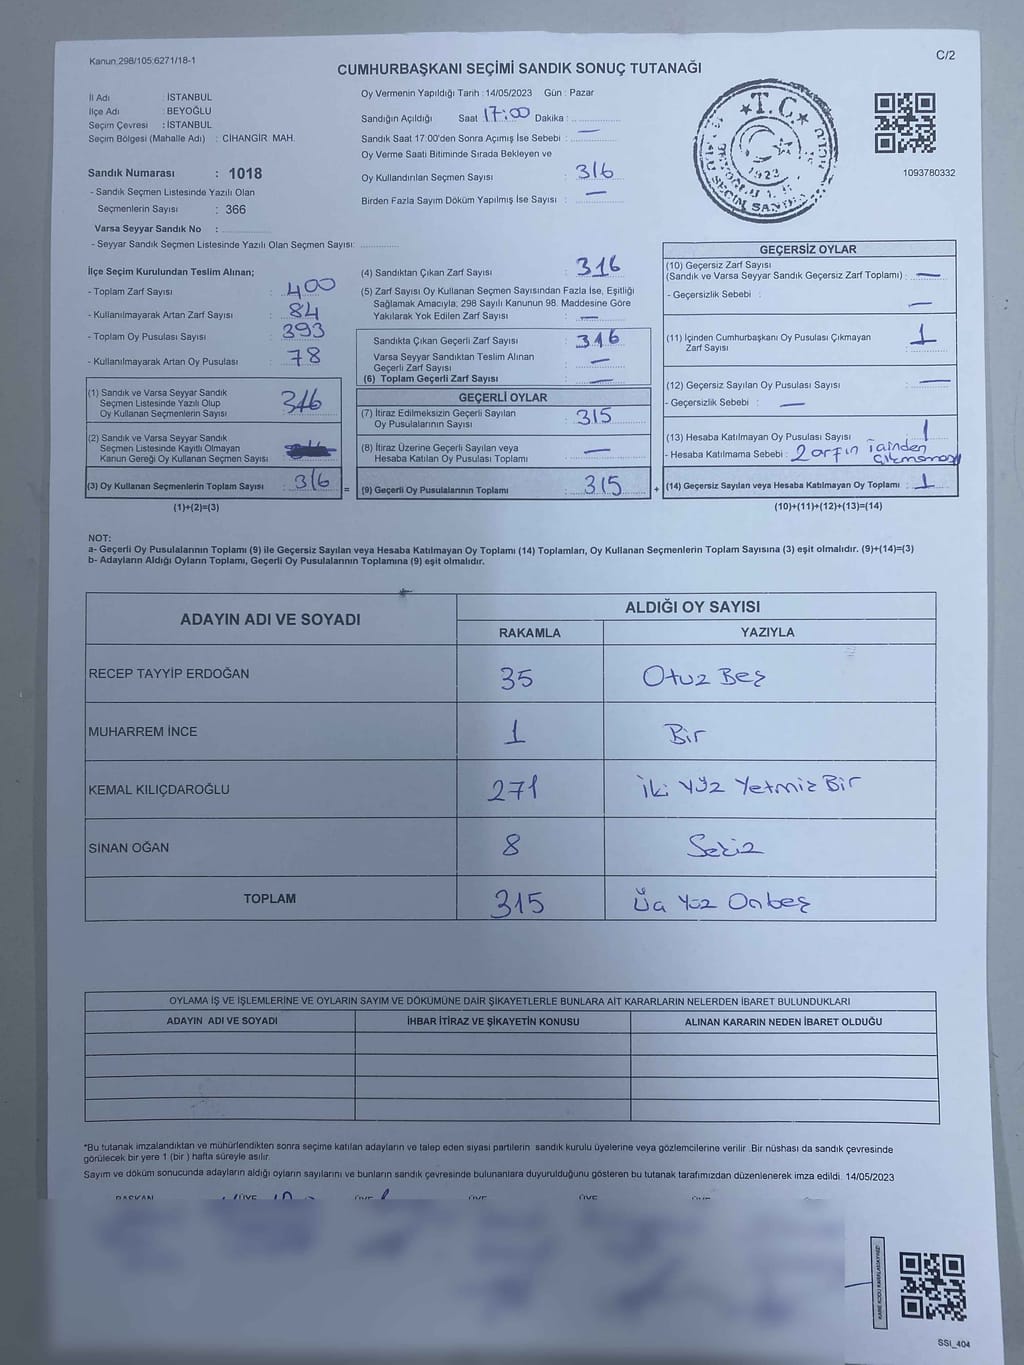 Kanun 298/105 6271/18-1
C/2
CUMHURBAŞKANI SEÇİMİ SANDIK SONUÇ TUTANAĞI
İl Adı : İSTANBUL
İlçe Adı : BEYOĞLU
Seçim Çevresi : İSTANBUL
Seçim Bölgesi (Mahalle Adı) : CİHANGİR MAH.
Sandık Numarası : 1018
- Sandık Seçmen Listesinde Yazılı Olan
Seçmenlerin Sayısı : 366
Varsa Seyyar Sandık No :
- Seyyar Sandık Seçmen Listesinde Yazılı Olan Seçmen Sayısı:
Oy Vermenin Yapıldığı Tarih : 14/05/2023 Gün : Pazar
Sandığın Açıldığı Saat 17:00 Dakika :
Sandık Saat 17:00'den Sonra Açımış İse Sebebi : —
Oy Verme Saati Bitiminde Sırada Bekleyen ve
Oy Kullandırılan Seçmen Sayısı : 316
Birden Fazla Sayım Döküm Yapılmış İse Sayısı : —
T.C.
1923
1093780332
İlçe Seçim Kurulundan Teslim Alınan;
- Toplam Zarf Sayısı : 400
- Kullanılmayarak Artan Zarf Sayısı : 84
- Toplam Oy Pusulası Sayısı : 393
- Kullanılmayarak Artan Oy Pusulası : 78
(1) Sandık ve Varsa Seyyar Sandık
Seçmen Listesinde Yazılı Olup
Oy Kullanan Seçmenlerin Sayısı : 316
(2) Sandık ve Varsa Seyyar Sandık
Seçmen Listesinde Kayıtlı Olmayan
Kanun Gereği Oy Kullanan Seçmen Sayısı :
(3) Oy Kullanan Seçmenlerin Toplam Sayısı : 316 =
(1)+(2)=(3)
(4) Sandıktan Çıkan Zarf Sayısı : 316
(5) Zarf Sayısı Oy Kullanan Seçmen Sayısından Fazla İse, Eşitliği
Sağlamak Amacıyla; 298 Sayılı Kanunun 98. Maddesine Göre
Yakılarak Yok Edilen Zarf Sayısı : —
Sandıkta Çıkan Geçerli Zarf Sayısı : 316
Varsa Seyyar Sandıktan Teslim Alınan
Geçerli Zarf Sayısı : —
(6) Toplam Geçerli Zarf Sayısı : —
GEÇERLİ OYLAR
(7) İtiraz Edilmeksizin Geçerli Sayılan
Oy Pusulalarının Sayısı : 315
(8) İtiraz Üzerine Geçerli Sayılan veya
Hesaba Katılan Oy Pusulası Toplamı : —
(9) Geçerli Oy Pusulalarının Toplamı : 315 +
GEÇERSİZ OYLAR
(10) Geçersiz Zarf Sayısı
(Sandık ve Varsa Seyyar Sandık Geçersiz Zarf Toplamı) : —
- Geçersizlik Sebebi : —
(11) İçinden Cumhurbaşkanı Oy Pusulası Çıkmayan
Zarf Sayısı : 1
(12) Geçersiz Sayılan Oy Pusulası Sayısı : —
- Geçersizlik Sebebi : —
(13) Hesaba Katılmayan Oy Pusulası Sayısı : 1
- Hesaba Katılmama Sebebi : Zarfın içinden çıkmaması
(14) Geçersiz Sayılan veya Hesaba Katılmayan Oy Toplamı : 1
(10)+(11)+(12)+(13)=(14)
NOT:
a- Geçerli Oy Pusulalarının Toplamı (9) ile Geçersiz Sayılan veya Hesaba Katılmayan Oy Toplamı (14) Toplamları, Oy Kullanan Seçmenlerin Toplam Sayısına (3) eşit olmalıdır. (9)+(14)=(3)
b- Adayların Aldığı Oyların Toplamı, Geçerli Oy Pusulalarının Toplamına (9) eşit olmalıdır.
ADAYIN ADI VE SOYADI ALDIĞI OY SAYISI
RAKAMLA YAZIYLA
RECEP TAYYİP ERDOĞAN 35 Otuz Beş
MUHARREM İNCE 1 Bir
KEMAL KILIÇDAROĞLU 271 iki yüz Yetmiş Bir
SİNAN OĞAN 8 Sekiz
TOPLAM 315 Üç Yüz Onbeş
OYLAMA İŞ VE İŞLEMLERİNE VE OYLARIN SAYIM VE DÖKÜMÜNE DAİR ŞİKAYETLERLE BUNLARA AİT KARARLARIN NELERDEN İBARET BULUNDUKLARI
ADAYIN ADI VE SOYADI İHBAR İTİRAZ VE ŞİKAYETİN KONUSU ALINAN KARARIN NEDEN İBARET OLDUĞU
*Bu tutanak imzalandıktan ve mühürlendikten sonra seçime katılan adayların ve talep eden siyasi partilerin sandık kurulu üyelerine veya gözlemcilerine verilir .Bir nüshası da sandık çevresinde
görülecek bir yere 1 (bir ) hafta süreyle asılır.
Sayım ve döküm sonucunda adayların aldığı oyların sayılarını ve bunların sandık çevresinde bulunanlara duyurulduğunu gösteren bu tutanak tarafımızdan düzenlenerek imza edildi. 14/05/2023
BAŞKAN ÜYE ÜYE ÜYE ÜYE
SSI_404